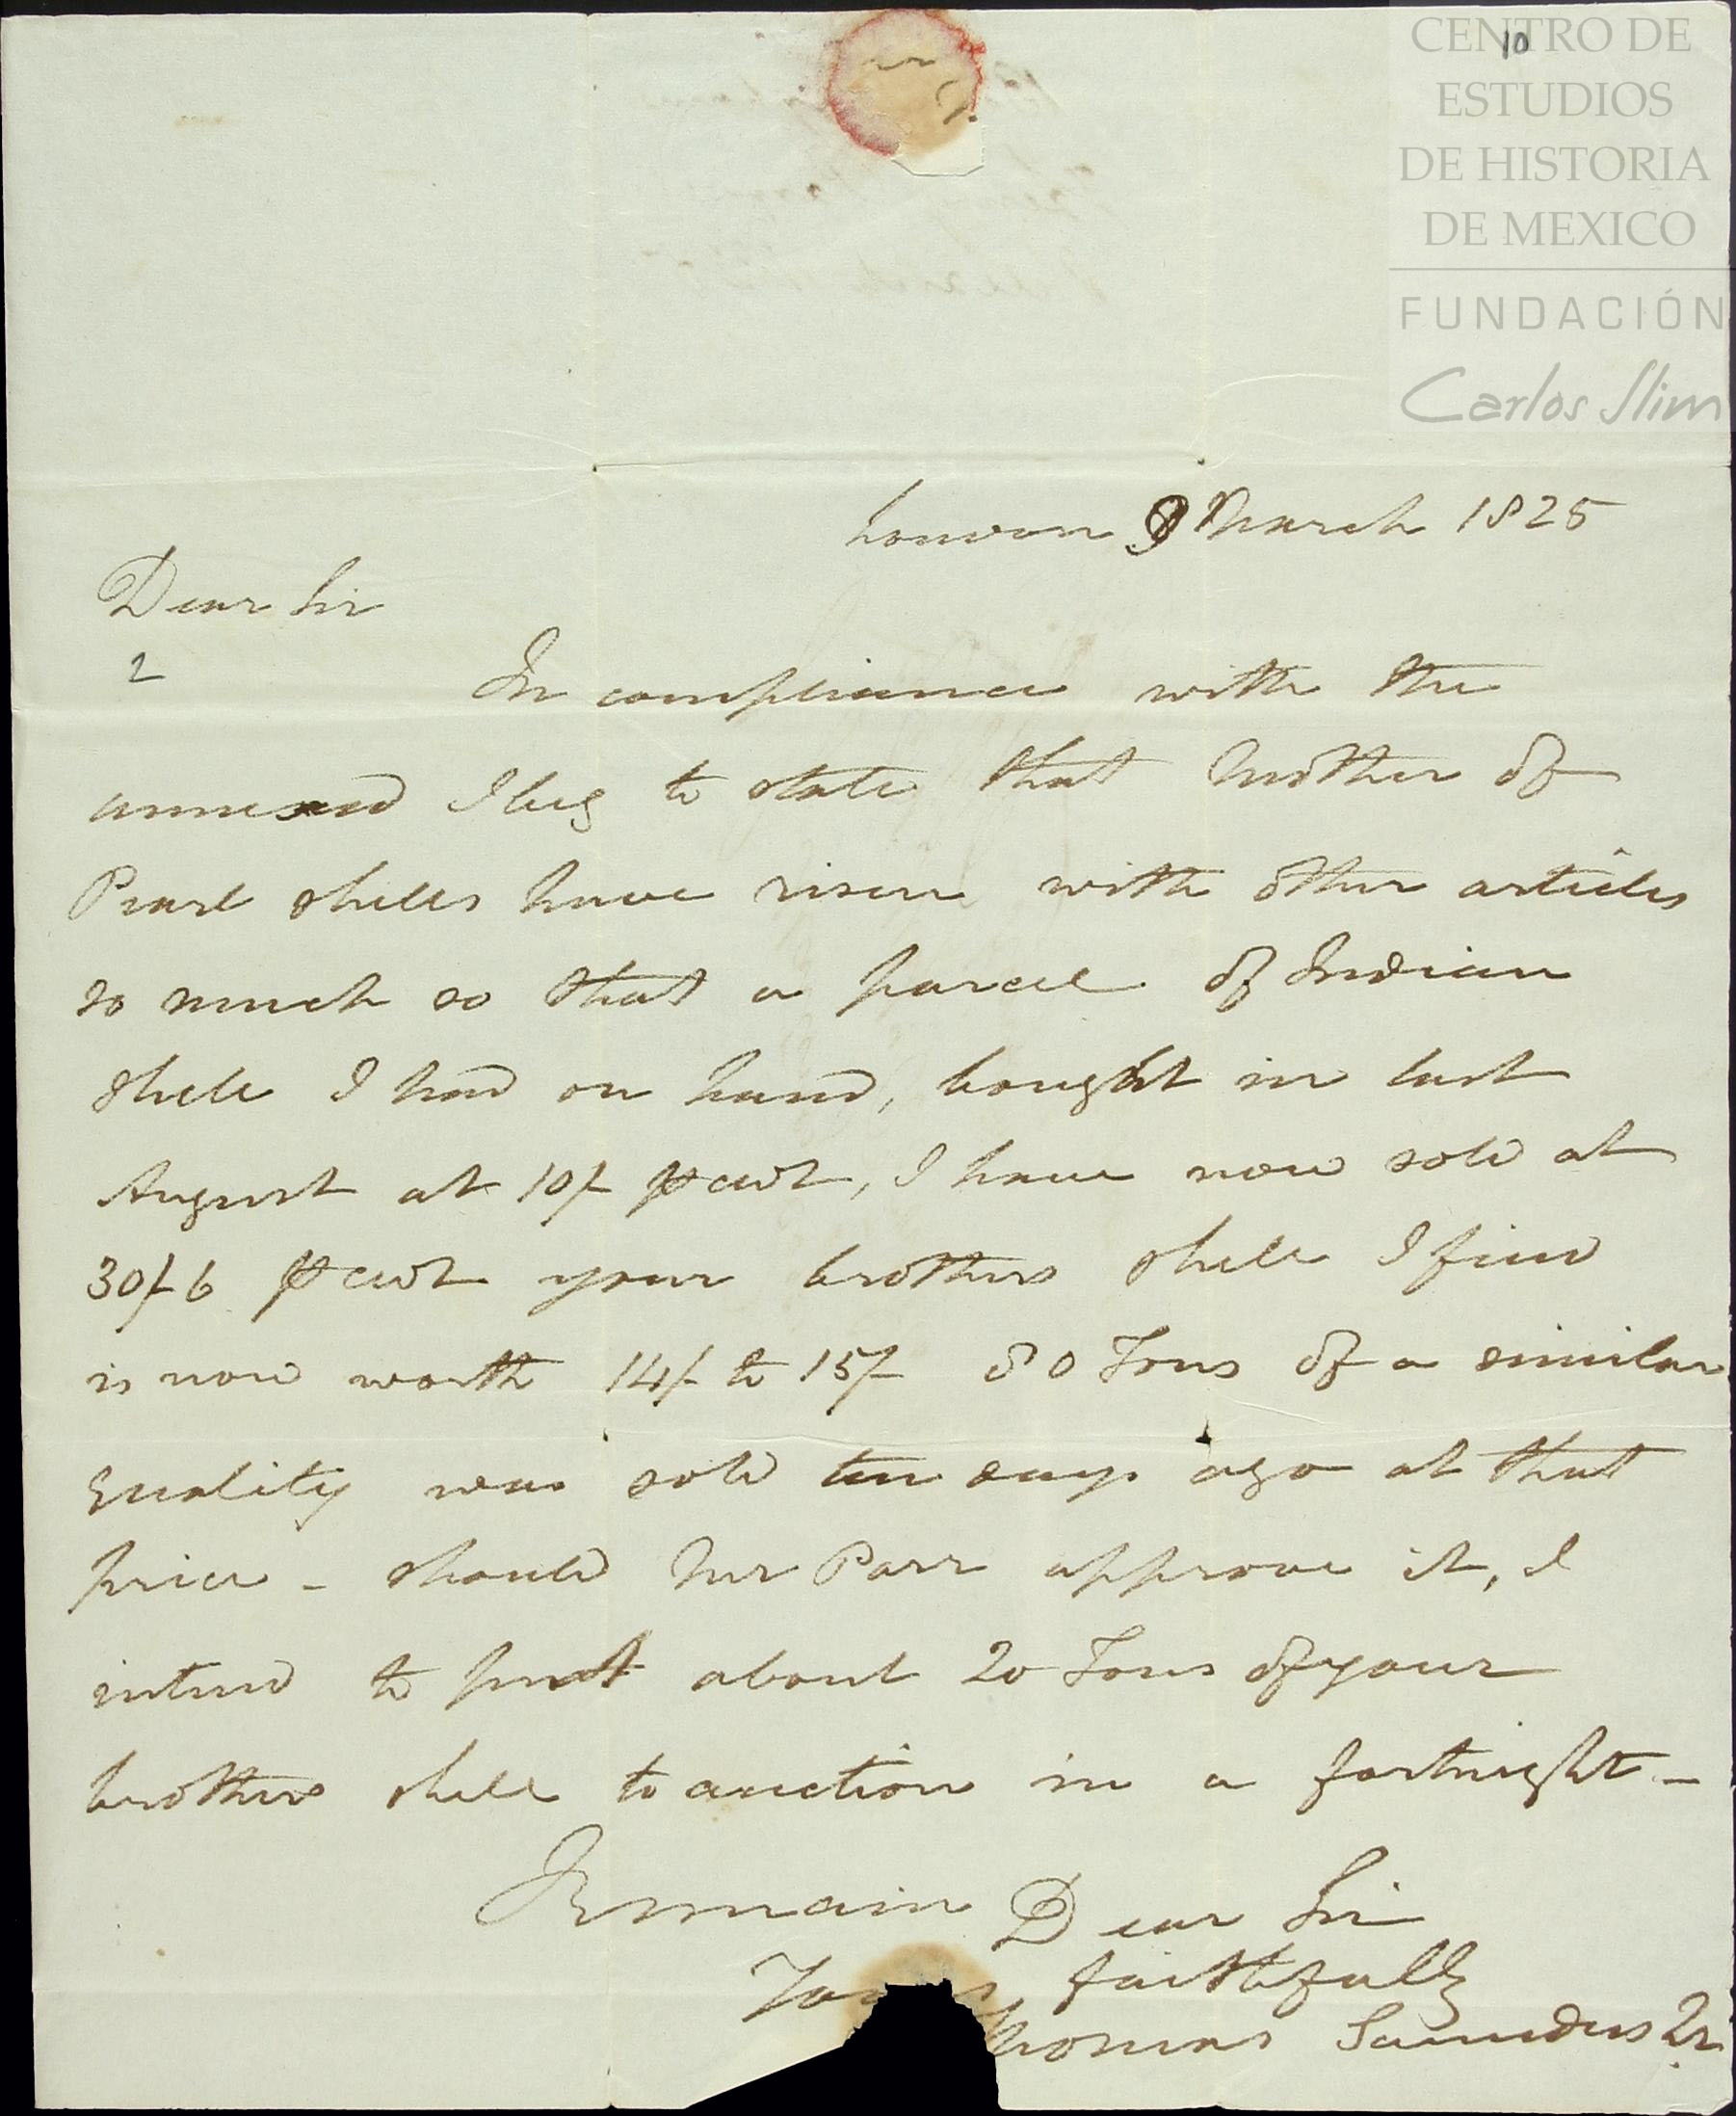 10
CENTRO DE
ESTUDIOS
DE HISTORIA
DE MEXICO
FUNDACIÓN
Carlos Slim
London 9 March 1825
Dear Sir
2
In compliance with the
annexed I beg to state that Mother of
Pearl shells have risen with other articles
so much so that a parcel of Indian
Shell I had on hand, bought in last
August at 10/- ⅌ cwt, I have now sold at
30/6 ⅌ cwt your brothers shell I find
is now worth 14/- to 15/- 80 Tons of a similar
quality was sold ten days ago at that
price - should Mr Parr approve it, I
intend to put about 20 Tons of your
brothers shell to auction in a fortnight -
I remain Dear Sir
faithfully
Thomas Saunders